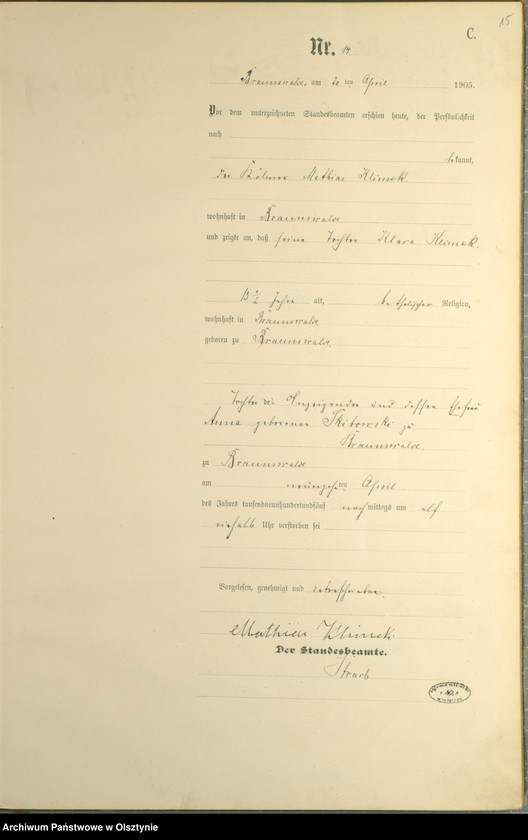 15
C.
Nr. 14.
Braunswalde, am 20 ten April 1905.
Vor dem unterzeichneten Standesbeamten erschien heute, der Persönlichkeit
nach
bekannt,
der Kölmer Mathias Klimek.
wohnhaft in Braunswalde
und zeigte an, daß seine Tochter Klara Klimek.
13 1/2 Jahre alt, katholischer Religion,
wohnhaft in Braunswalde
geboren zu Braunswalde.
Tochter des Anzeigenden und dessen Ehefrau
Anna geborenen Skibowski zu
Braunswalde.
zu Braunswalde
am neunzehnten April
des Jahres tausendneunhundertundfünf nachmittags um elf
einhalb Uhr verstorben sei
Vorgelesen, genehmigt und unterschrieben.
Mathias Klimek.
Der Standesbeamte.
Archiwum Państwowe w Olsztynie